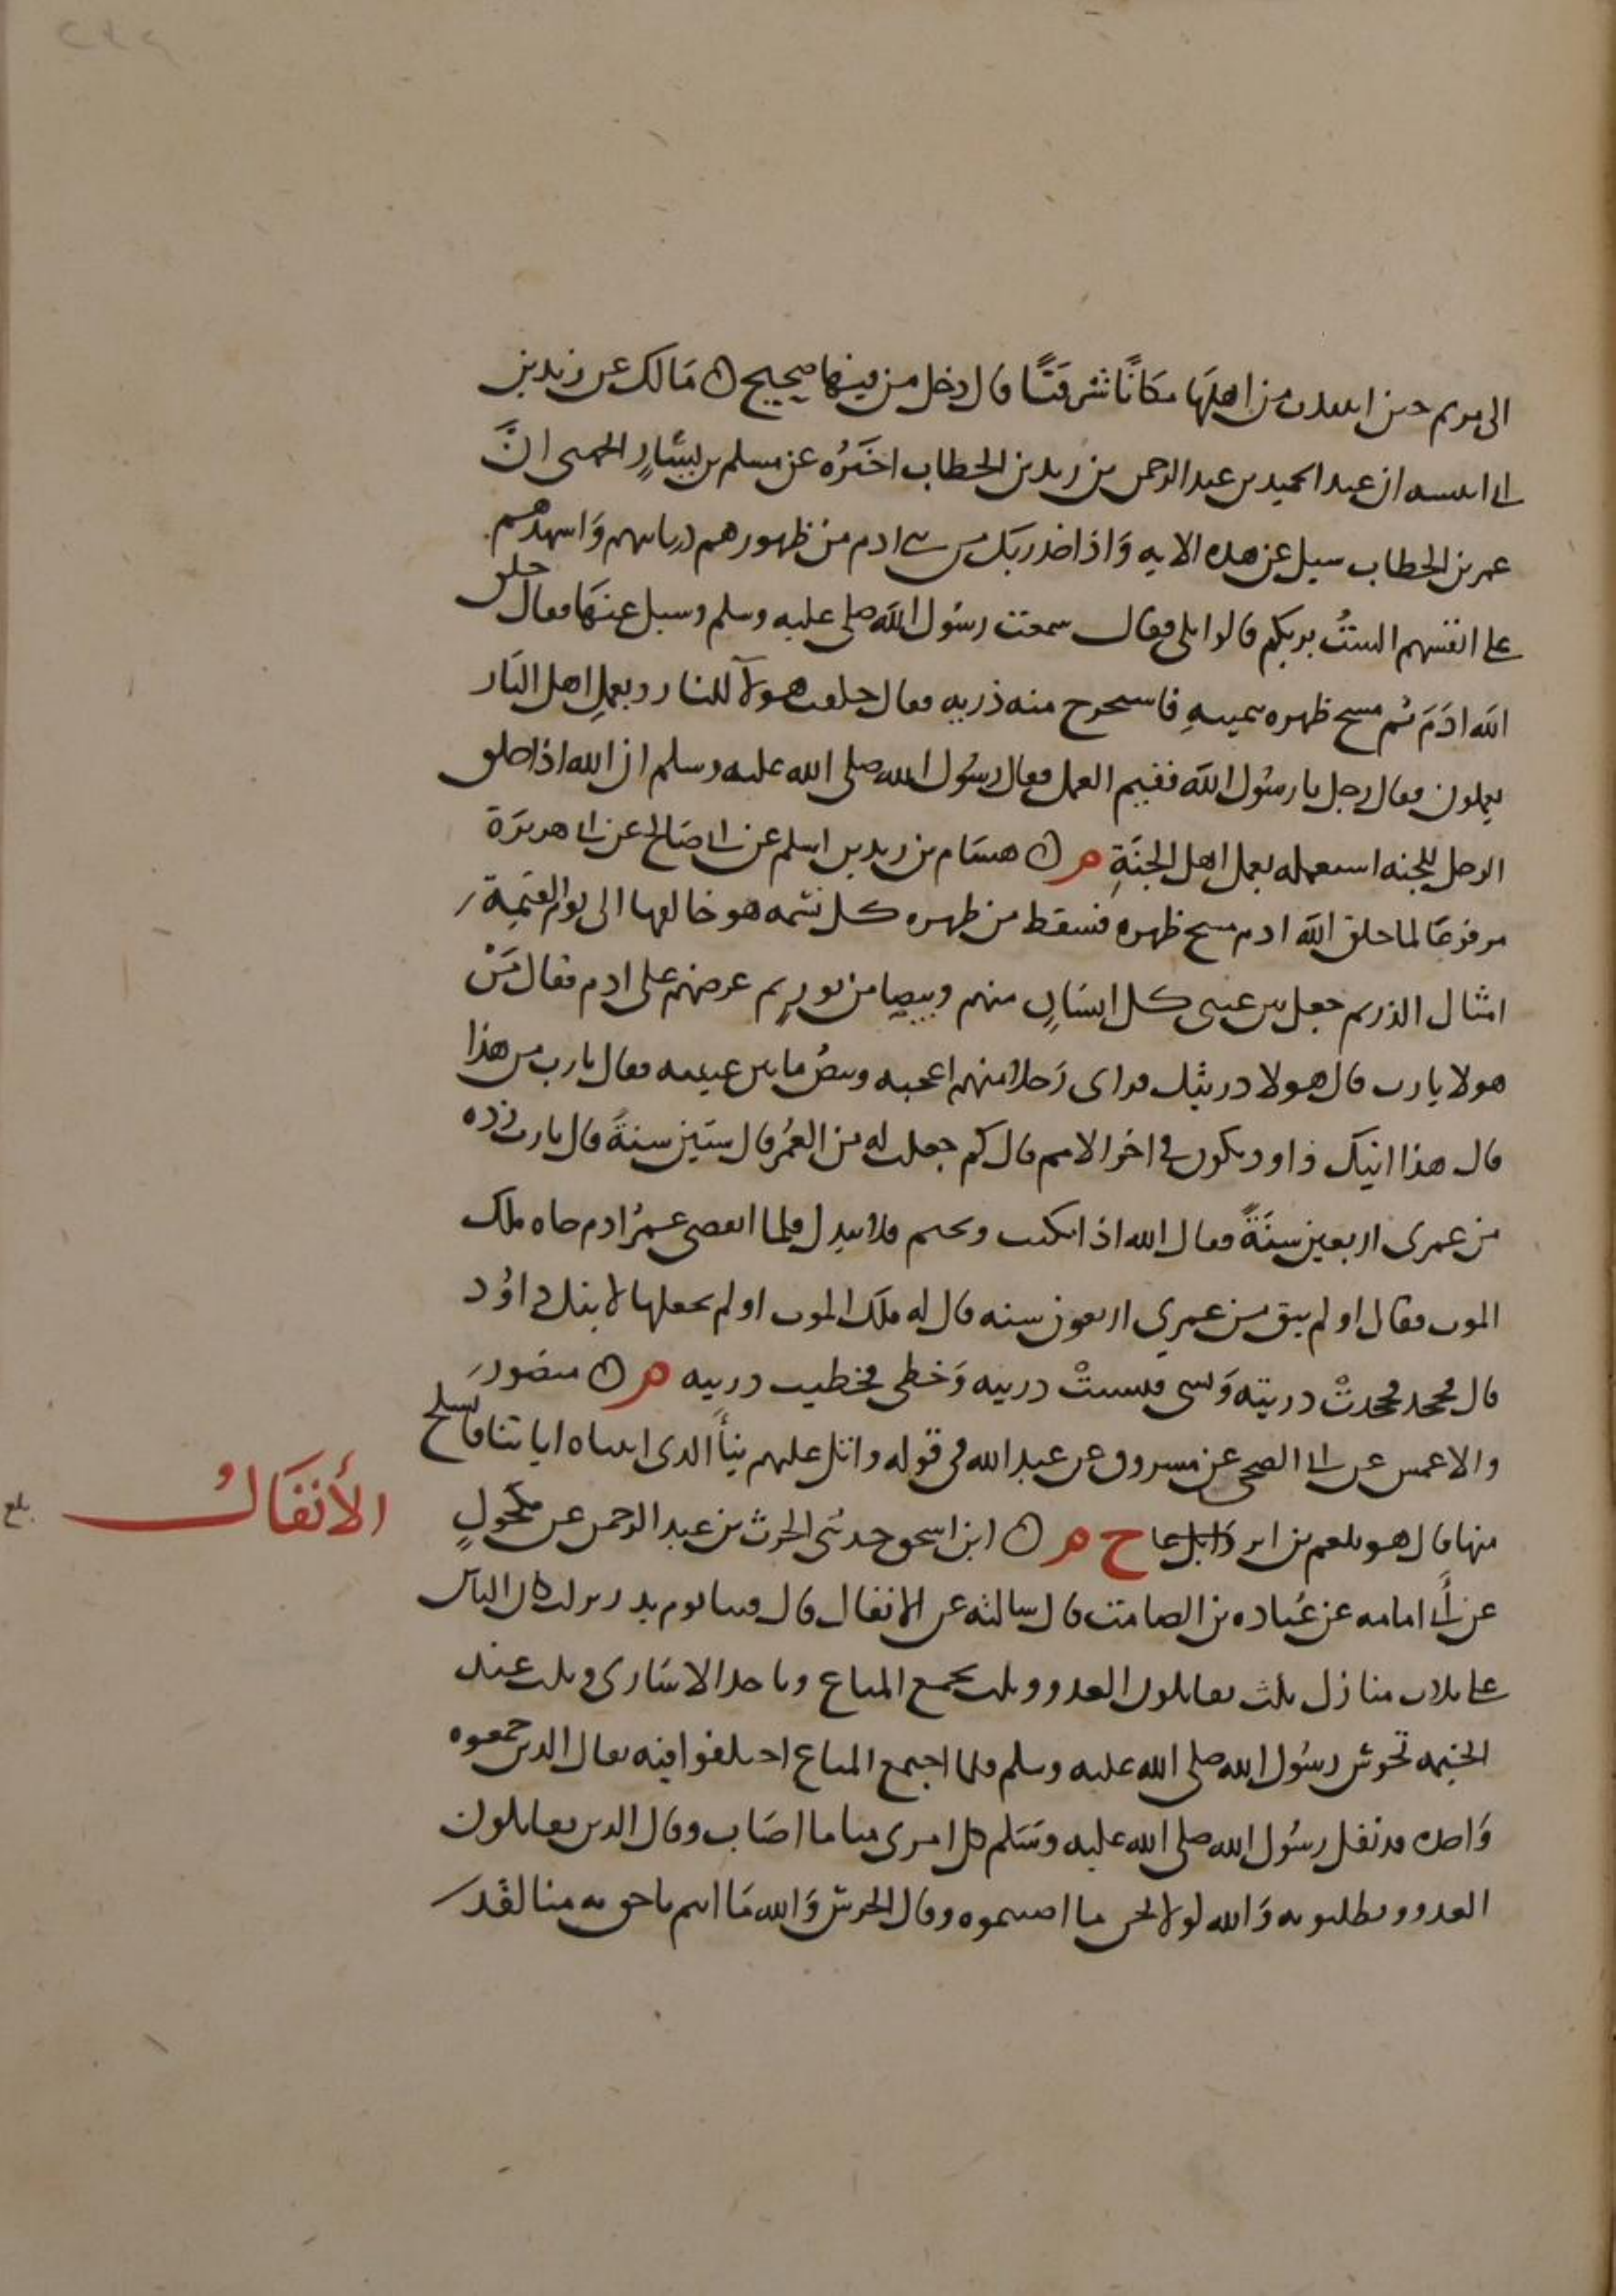 الى مريم حين انتبذت من اهلها مكانًا شرقيًّا قال دخل من فيها صحيح ه مالك عن زيد بن
ابي انيسه ان عبد الحميد بن عبد الرحمن بن زيد بن الخطاب اخبَرُه عن مسلم بن يشارٍ الجهني انَّ
عمر بن الخطاب سيل عن هذه الايه وَاذ اخذ ربك من بني ادم من ظهورهم ذرياتهم وَاشهدهم
على انفسهم الستُ بربكم قالوا بلى فقال سمعت رسُول الله صلى عليه وسلم وسيل عنهَا فقال خلق
الله ادَمَ ثم مسح ظهره بيمينهِ فاستخرج منه ذريه فقال خلقت هولآ للنار وبعملِ اهل النَار
يعملون فقال رجل يا رسُول الله ففيم العمل فقال رسُول الله صلى الله عليه وسلم ان الله اذا خلق
الرجل للجنه استعمله بعمل اهل الجنَةِ م ه هشَام بن زيد بن اسلم عن ابي صَالح عن ابي هريرَة
مرفوعًا لما خلق الله ادم مسح ظهره فسقط من ظهره كل نسَمه هو خالقها الى يوم القيمَة
امثال الذر ثم جعل بين عيني كل انسَانٍ منهم وبيصا من نور ثم عرضهم على ادم فقال مَنْ
هولا يا رب قال هولا ذريتك فراى رَجلا منهم اعجبه وبيصُ ما بين عينيه فقال يا رب من هذا
قال هذا ابنك داود يكون في اخر الامم قال كم جعلت له من العُمُر قال ستين سنةً قال يا رب زده
من عمرى اربعين سنَةً فقال الله اذا يكتب ويختم فلا يبدل فلما انقضى عمرُ ادم جاه ملك
الموت فقال اولم يبق من عمري اربعون سنه قال له ملك الموت اولم تجعلها لابنك داوُد
قال فجحد فجحدتْ ذريته وَنسى فنسيتْ ذريته وَخطى فخطيت ذريته م ه منصور
والاعمش عن ابي الضحى عن مسروق عن عبد الله في قوله واتل عليهم نبأَ الذي اتيناه اياتنا فانسلخ
منها قال هو بلعم بن ابر خ م ه ابن اسحق حدثني الحرث بن عبد الرحمن عن مكحولٍ
الأنفَالُ
بلغ
عن أبي امامه عن عُباده بن الصامت قال سالته عن الانفال قال فينا يوم بدر نزلت كان الناس
على ثلاث منازل ثلث يقاتلون العدو وثلث يجمع المتاع وياخذ الاسَارى وثلث عند
الخيمه تحرس رسُول الله صلى الله عليه وسلم فلما اجتمع المتاع اختلفوا فيه فقال الذين جمعوه
وَاخذه قد نفل رسُول الله صلى الله عليه وسَلم كل امرى منا ما اصَاب وقال الذين يقاتلون
العدو ويطلبونه وَالله لولا نحن ما اصبتموه وقال الحرس وَالله مَا انتم باحق به منا لقَد